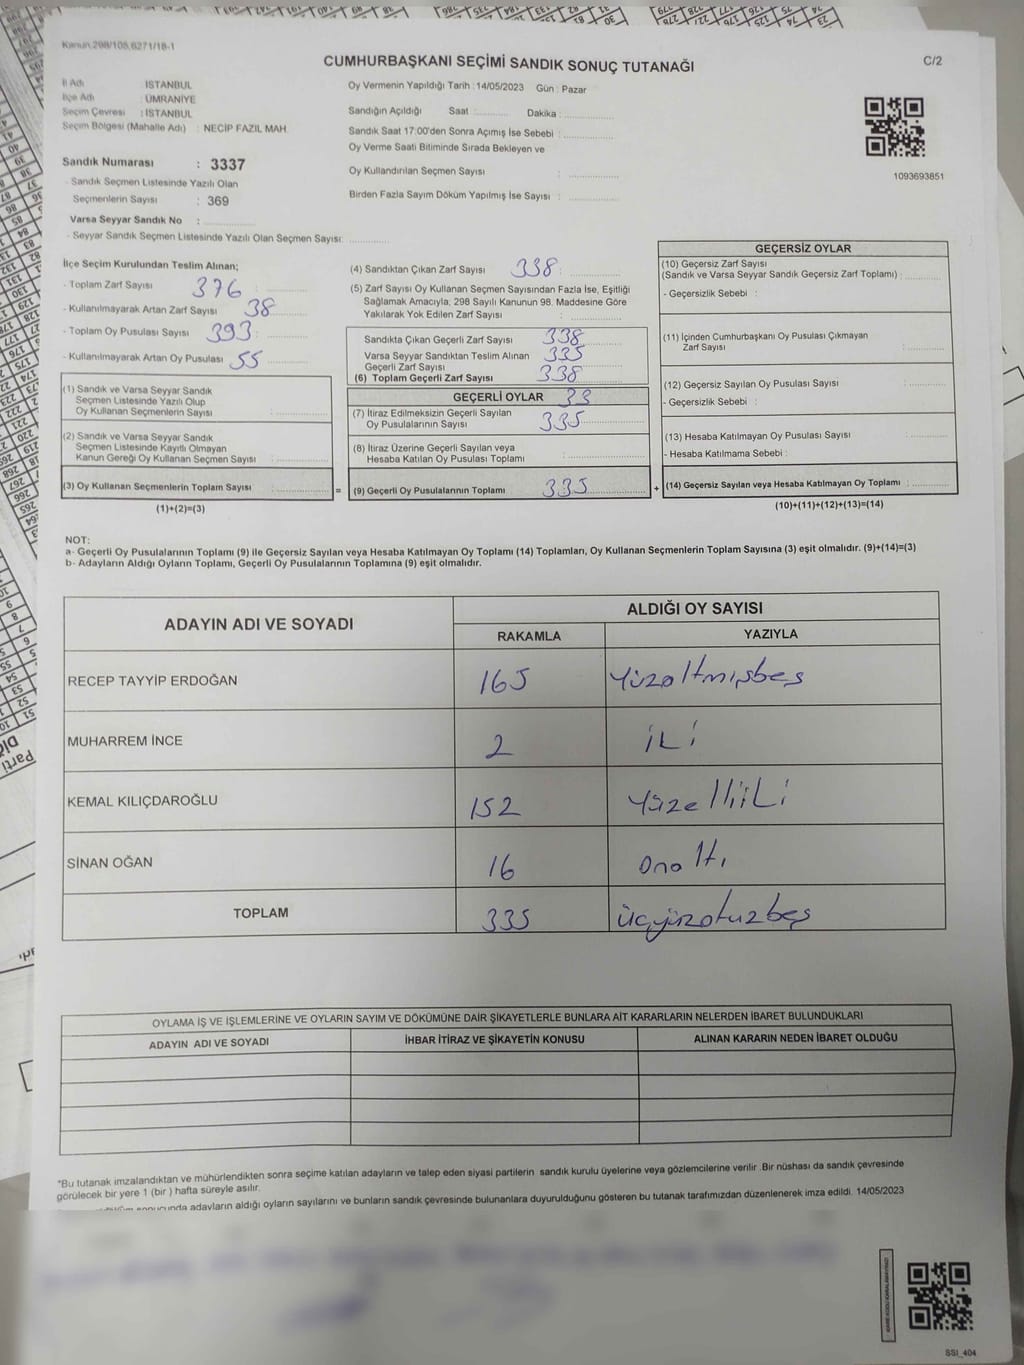 Kanun 298/105,6271/18-1
CUMHURBAŞKANI SEÇİMİ SANDIK SONUÇ TUTANAĞI
C/2
İl Adı İSTANBUL
İlçe Adı : ÜMRANİYE
Seçim Çevresi : İSTANBUL
Seçim Bölgesi (Mahalle Adı) : NECİP FAZIL MAH.
Sandık Numarası : 3337
- Sandık Seçmen Listesinde Yazılı Olan
Seçmenlerin Sayısı : 369
Varsa Seyyar Sandık No :
- Seyyar Sandık Seçmen Listesinde Yazılı Olan Seçmen Sayısı:
Oy Vermenin Yapıldığı Tarih : 14/05/2023 Gün : Pazar
Sandığın Açıldığı Saat : Dakika :
Sandık Saat 17:00'den Sonra Açımış İse Sebebi :
Oy Verme Saati Bitiminde Sırada Bekleyen ve
Oy Kullandırılan Seçmen Sayısı :
Birden Fazla Sayım Döküm Yapılmış İse Sayısı :
1093693851
İlçe Seçim Kurulundan Teslim Alınan;
- Toplam Zarf Sayısı 376
- Kullanılmayarak Artan Zarf Sayısı 38
- Toplam Oy Pusulası Sayısı 393
- Kullanılmayarak Artan Oy Pusulası 55
(1) Sandık ve Varsa Seyyar Sandık
Seçmen Listesinde Yazılı Olup
Oy Kullanan Seçmenlerin Sayısı :
(2) Sandık ve Varsa Seyyar Sandık
Seçmen Listesinde Kayıtlı Olmayan
Kanun Gereği Oy Kullanan Seçmen Sayısı :
(3) Oy Kullanan Seçmenlerin Toplam Sayısı :
(1)+(2)=(3)
=
(4) Sandıktan Çıkan Zarf Sayısı 338 :
(5) Zarf Sayısı Oy Kullanan Seçmen Sayısından Fazla İse, Eşitliği
Sağlamak Amacıyla, 298 Sayılı Kanunun 98. Maddesine Göre
Yakılarak Yok Edilen Zarf Sayısı :
Sandıkta Çıkan Geçerli Zarf Sayısı 338
Varsa Seyyar Sandıktan Teslim Alınan 335
Geçerli Zarf Sayısı
(6) Toplam Geçerli Zarf Sayısı 338
GEÇERLİ OYLAR 33
(7) İtiraz Edilmeksizin Geçerli Sayılan
Oy Pusulalarının Sayısı 335
(8) İtiraz Üzerine Geçerli Sayılan veya
Hesaba Katılan Oy Pusulası Toplamı :
(9) Geçerli Oy Pusulalarının Toplamı 335
+
GEÇERSİZ OYLAR
(10) Geçersiz Zarf Sayısı
(Sandık ve Varsa Seyyar Sandık Geçersiz Zarf Toplamı) :
- Geçersizlik Sebebi :
(11) İçinden Cumhurbaşkanı Oy Pusulası Çıkmayan
Zarf Sayısı :
(12) Geçersiz Sayılan Oy Pusulası Sayısı :
- Geçersizlik Sebebi :
(13) Hesaba Katılmayan Oy Pusulası Sayısı :
- Hesaba Katılmama Sebebi :
(14) Geçersiz Sayılan veya Hesaba Katılmayan Oy Toplamı :
(10)+(11)+(12)+(13)=(14)
NOT:
a- Geçerli Oy Pusulalarının Toplamı (9) ile Geçersiz Sayılan veya Hesaba Katılmayan Oy Toplamı (14) Toplamları, Oy Kullanan Seçmenlerin Toplam Sayısına (3) eşit olmalıdır. (9)+(14)=(3)
b- Adayların Aldığı Oyların Toplamı, Geçerli Oy Pusulalarının Toplamına (9) eşit olmalıdır.
ADAYIN ADI VE SOYADI
ALDIĞI OY SAYISI
RAKAMLA YAZIYLA
RECEP TAYYİP ERDOĞAN 165 Yüzaltmışbeş
MUHARREM İNCE 2 iki
KEMAL KILIÇDAROĞLU 152 Yüzelliiki
SİNAN OĞAN 16 onaltı
TOPLAM 335 üçyüzotuzbeş
OYLAMA İŞ VE İŞLEMLERİNE VE OYLARIN SAYIM VE DÖKÜMÜNE DAİR ŞİKAYETLERLE BUNLARA AİT KARARLARIN NELERDEN İBARET BULUNDUKLARI
ADAYIN ADI VE SOYADI İHBAR İTİRAZ VE ŞİKAYETİN KONUSU ALINAN KARARIN NEDEN İBARET OLDUĞU
*Bu tutanak imzalandıktan ve mühürlendikten sonra seçime katılan adayların ve talep eden siyasi partilerin sandık kurulu üyelerine veya gözlemcilerine verilir .Bir nüshası da sandık çevresinde
görülecek bir yere 1 (bir ) hafta süreyle asılır.
adayların aldığı oyların sayılarını ve bunların sandık çevresinde bulunanlara duyurulduğunu gösteren bu tutanak tarafımızdan düzenlenerek imza edildi. 14/05/2023
SSI_404